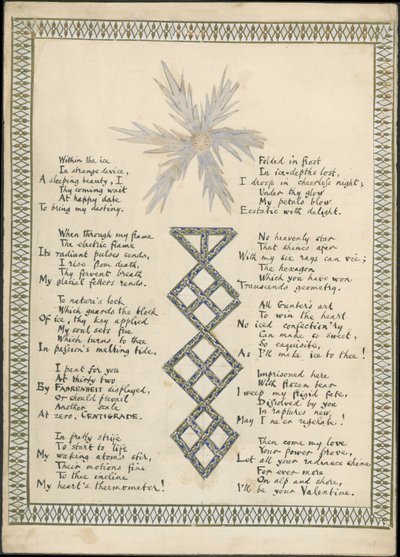 Within the ice
In strange device,
A sleeping beauty, I
Thy coming wait
At happy date
To bring my destiny.
When through my frame
The electric flame
Its radiant pulses sends,
I rise from death,
Thy fervent breath
My glacial fetters rends.
To nature's lock
Which guards the block
Of ice, thy key applied
My soul sets free
Which turns to thee
In passion's melting tide.
I pant for you
At thirty two
By FAHRENHEIT displayed,
Or should prevail
Another scale
At zero, CENTIGRADE.
In pretty strife
To start to life
My waking atoms stir,
Their motions fine
To thee incline
My heart's thermometer!
Folded in frost
In ice-depths lost,
I droop in cheerless night;
Under thy glow
My petals blow
Ecstatic with delight.
No heavenly star
That shines afar
With my six rays can vie;
The hexagon
Which you have won
Transcends geometry.
All Gunter's art
To win the heart
No iced confection'ry
Can make so sweet,
So exquisite,
As I'll make ice to thee!
Imprisoned here
With frozen tear
I weep my frigid fate,
Dissolved by you
In raptures new,
May I ne'er regelate!
Then come my love
Your power prove,
Let all your radiance shine
For ever more
On alp and shore,
I'll be your Valentine.